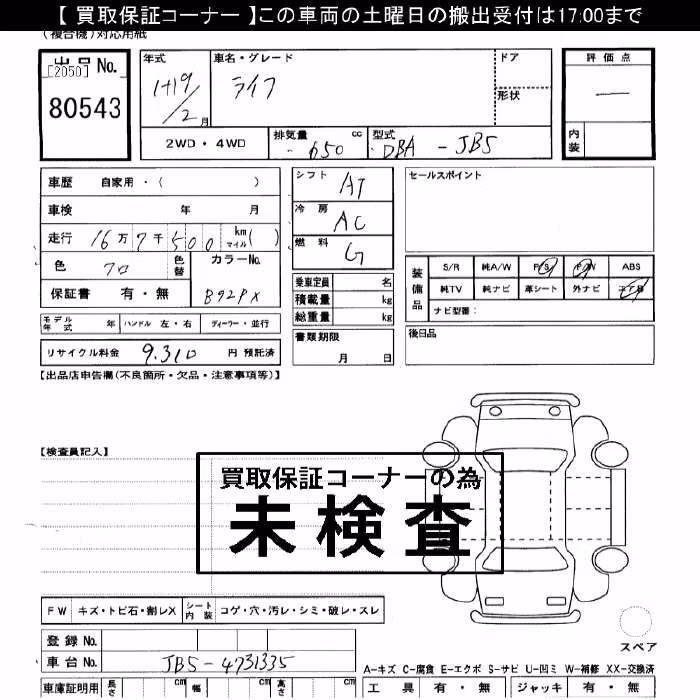 【 買取保証コーナー 】この車両の土曜日の搬出受付は17:00まで
(複合機)対応用紙
出品 No.
[2050]
80543
年式
H19/2月
車名・グレード
ライフ
ドア
形状
評価点
—
内装
2WD・4WD
排気量 cc
-650
型式
DBA - JB5
車歴 自家用・( )
車検 年 月
走行 16万7千500 km マイル ( )
色 クロ
色替
カラーNo.
B92PX
保証書 有・無
シフト AT
冷房 AC
燃料 G
乗車定員 名
積載量 kg
総重量 kg
セールスポイント
装備品
S/R 純A/W P/S P/W ABS
純TV 純ナビ 革シート 外ナビ エアB
ナビ型番:
モデル年式 年 ハンドル 左・右 ディーラー・並行
書類期限
月 日
後日品
リサイクル料金 9.310 円 預託済
【出品店申告欄(不良箇所・欠品・注意事項等)】
【検査員記入】
買取保証コーナーの為
未検査
FW キズ・トビ石・割レX
シート内装 コゲ・穴・汚レ・シミ・破レ・スレ
登録 No.
車台 No. JB5-4731335
スペア
A-キズ C-腐食 E-エクボ S-サビ U-凹ミ W-補修 XX-交換済
車庫証明用 長さ cm 幅 cm 高さ cm
工具 有・無 ジャッキ 有・無